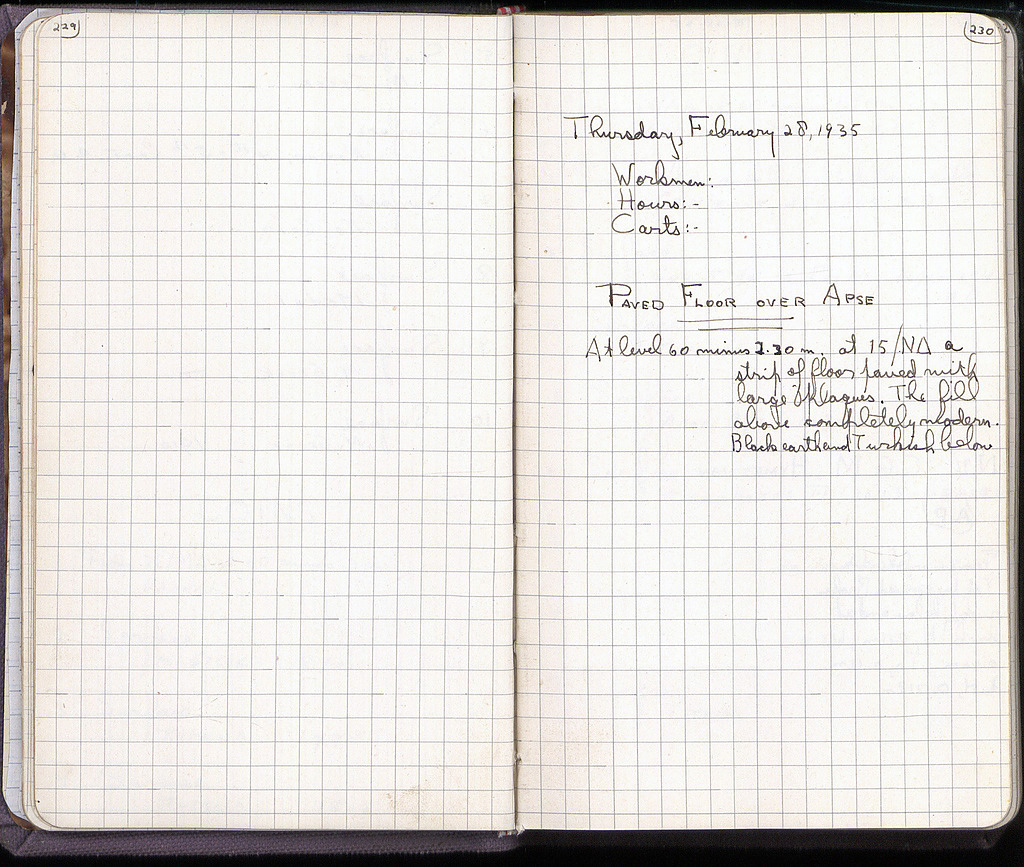 229
230
Thursday, February 28, 1935
Workmen:
Hours:-
Carts:-
PAVED FLOOR OVER APSE
At level 60 minus 2.30 m. at 15/ΝΔ a
strip of floor paved with
large plaques. The fill
above completely modern.
Black earth and Turkish below